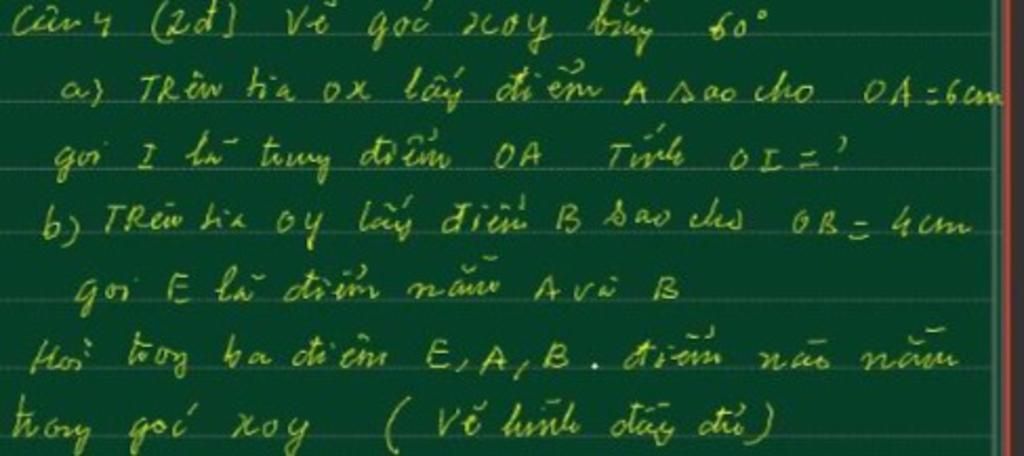 Câu 4 (2đ) Vẽ góc xoy bằng 60°
a) Trên tia ox lấy điểm A sao cho OA = 6cm
gọi I là trung điểm OA Tính OI = ?
b) Trên tia oy lấy điểm B sao cho OB = 4cm
gọi E là điểm nằm A và B
Hỏi trong ba điểm E, A, B. điểm nào nằm
trong góc xoy (Vẽ hình đầy đủ)